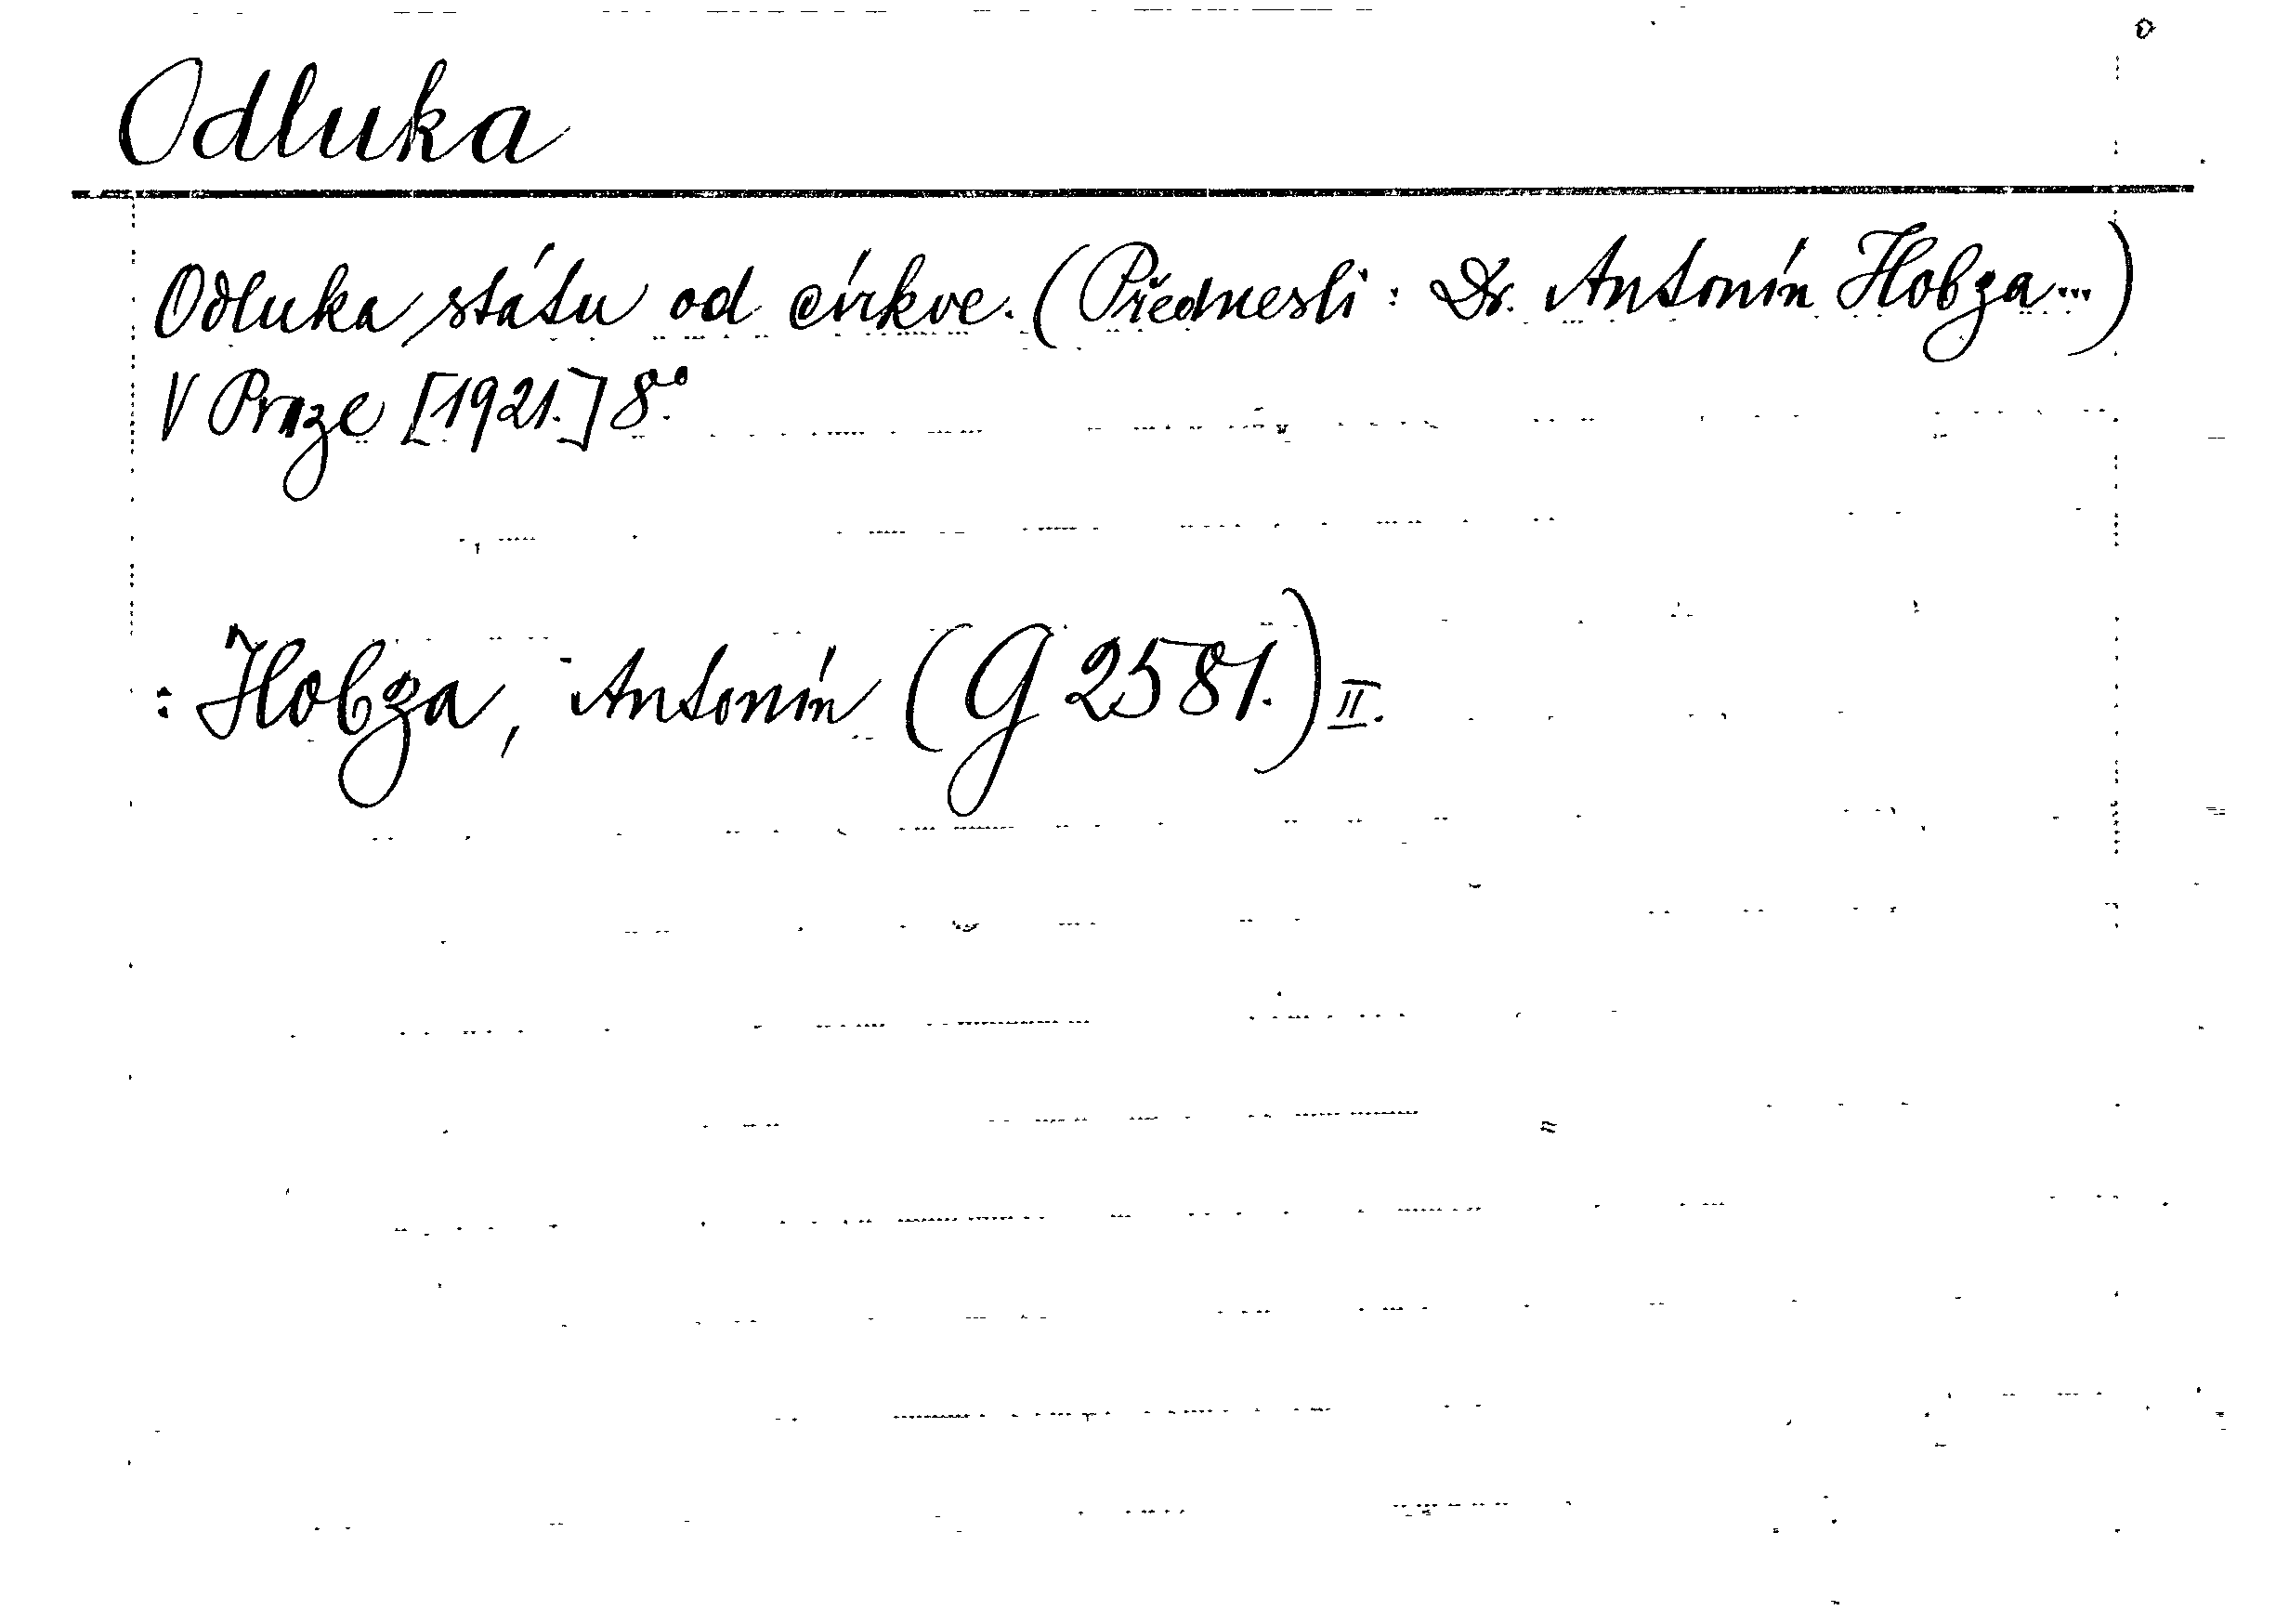 Odluka
Odluka státu od církve. (Přednesli: Dr. Antonín Hobza...)
V Praze [1921.] 8.°
: Hobza, Antonín (G 2581.) II.